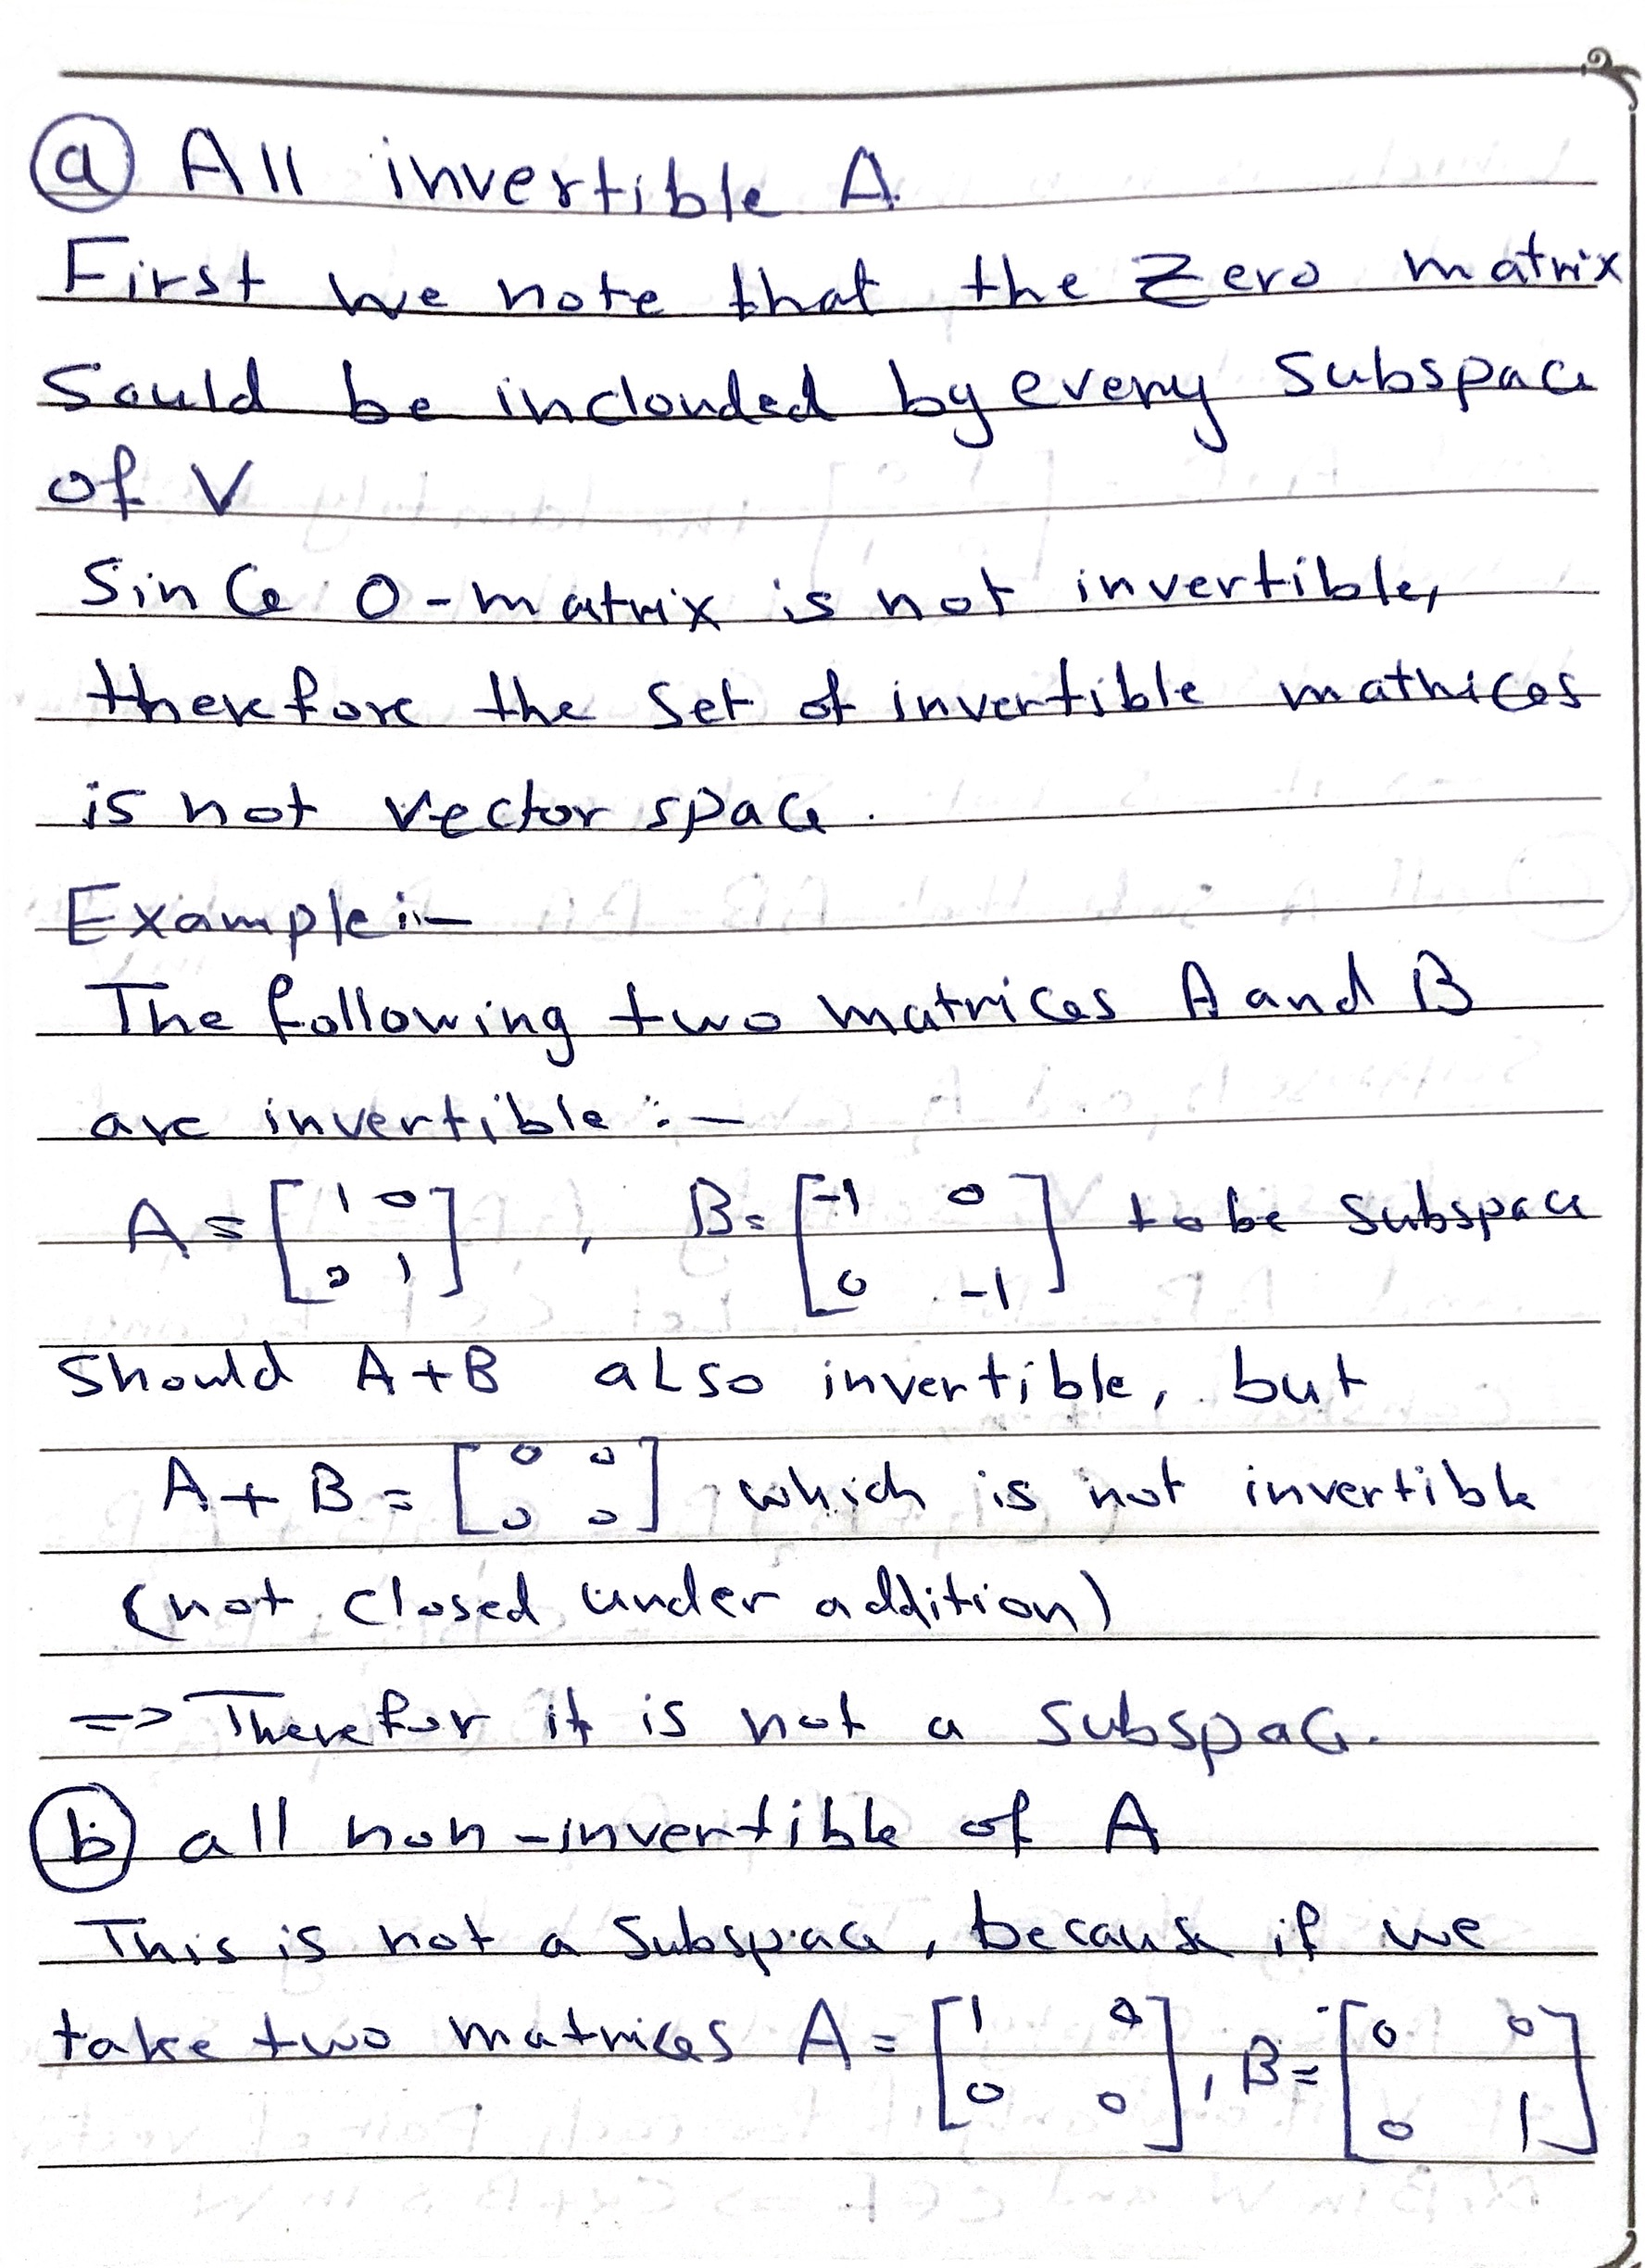 (a) All invertible A.
First we note that the Zero matrix
Sould be inclouded by every subspace
of V
Since 0-matrix is not invertible,
therefore the Set of invertible matrices
is not vector space.
Example:-
The following two matrices A and B
are invertible :-
A = [1 0; 0 1] , B = [-1 0; 0 -1] to be subspace
Should A+B also invertible, but
A + B = [0 0; 0 0] which is not invertible
(not closed under addition)
=> Therefor it is not a subspace.
(b) all non-invertible of A
This is not a Subspace, because if we
take two matrices A = [1 0; 0 0], B = [0 0; 0 1]